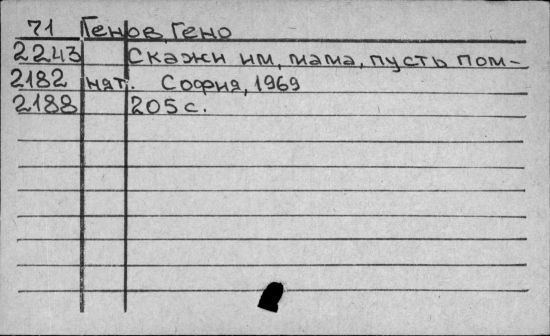 71 Генов, Гено
2243 Скажи им, мама, пусть пом-
2182 нят. София, 1969
2188 205 с.